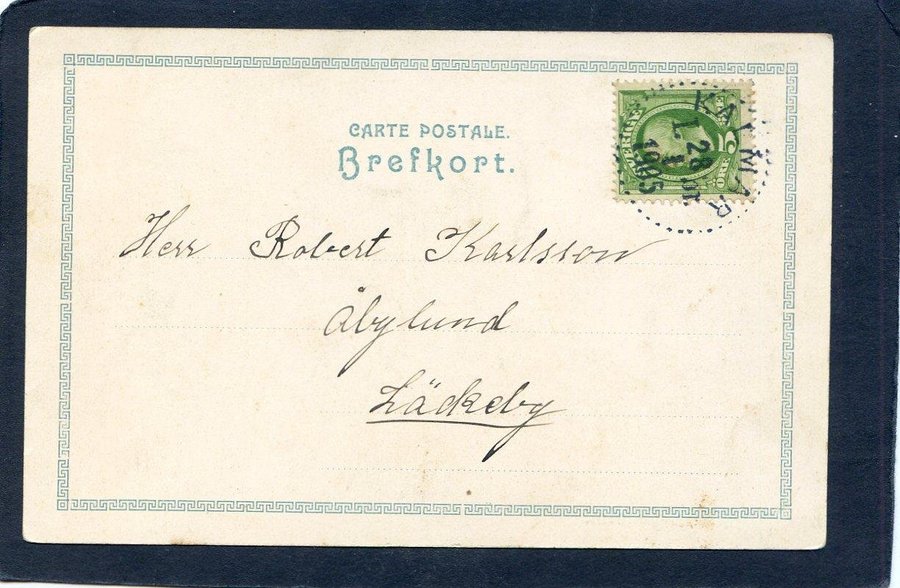 CARTE POSTALE.
Brefkort.
SVERIGE
5
ÖRE
KALMAR
28
1
1905
Herr Robert Karlsson
Åbylund
Läckeby